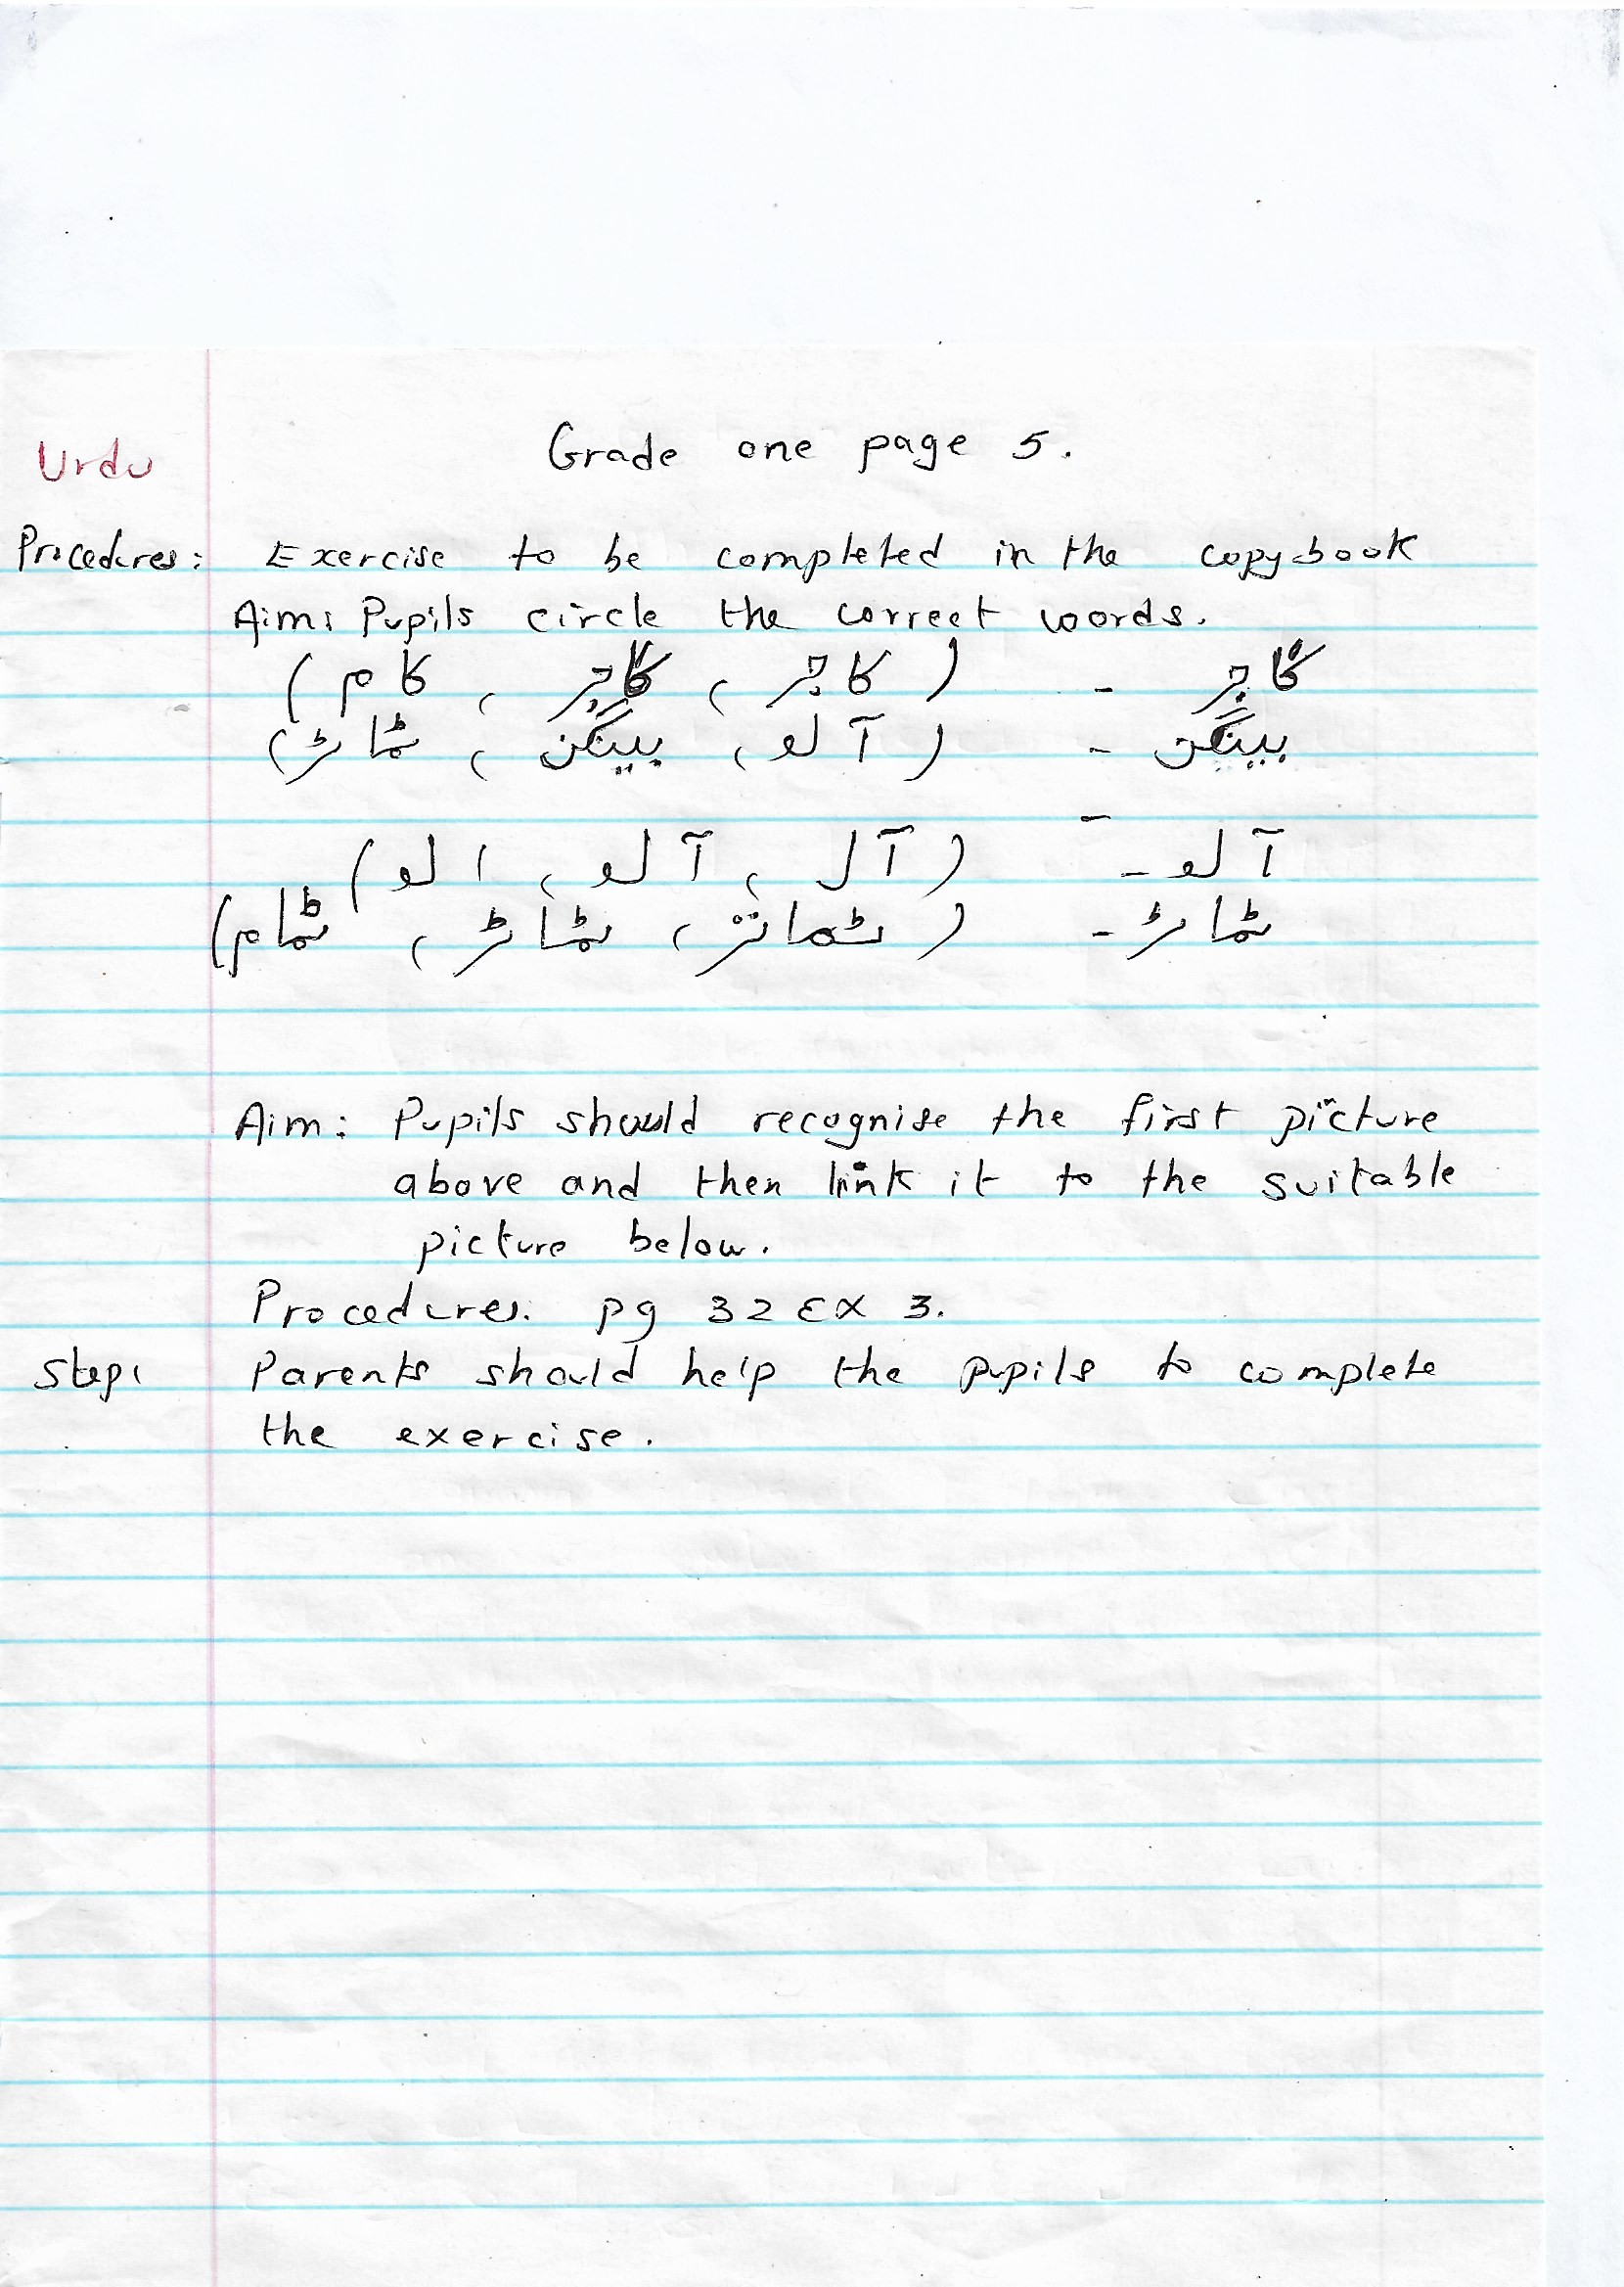 Urdu
Grade one page 5.
Procedures: Exercise to be completed in the copybook
Aim: Pupils circle the correct words.
گاجر - (کاجر ، گاجر ، کام)
بینگن - (آلو ، بینگن ، ٹماٹر)
آلو - (آل ، آلو ، الو)
ٹماٹر - (ٹماتر ، ٹماٹر ، ٹمام)
Aim: Pupils should recognise the first picture
above and then link it to the suitable
picture below.
Procedures. pg 32 Ex 3.
Step: Parents should help the pupils to complete
the exercise.